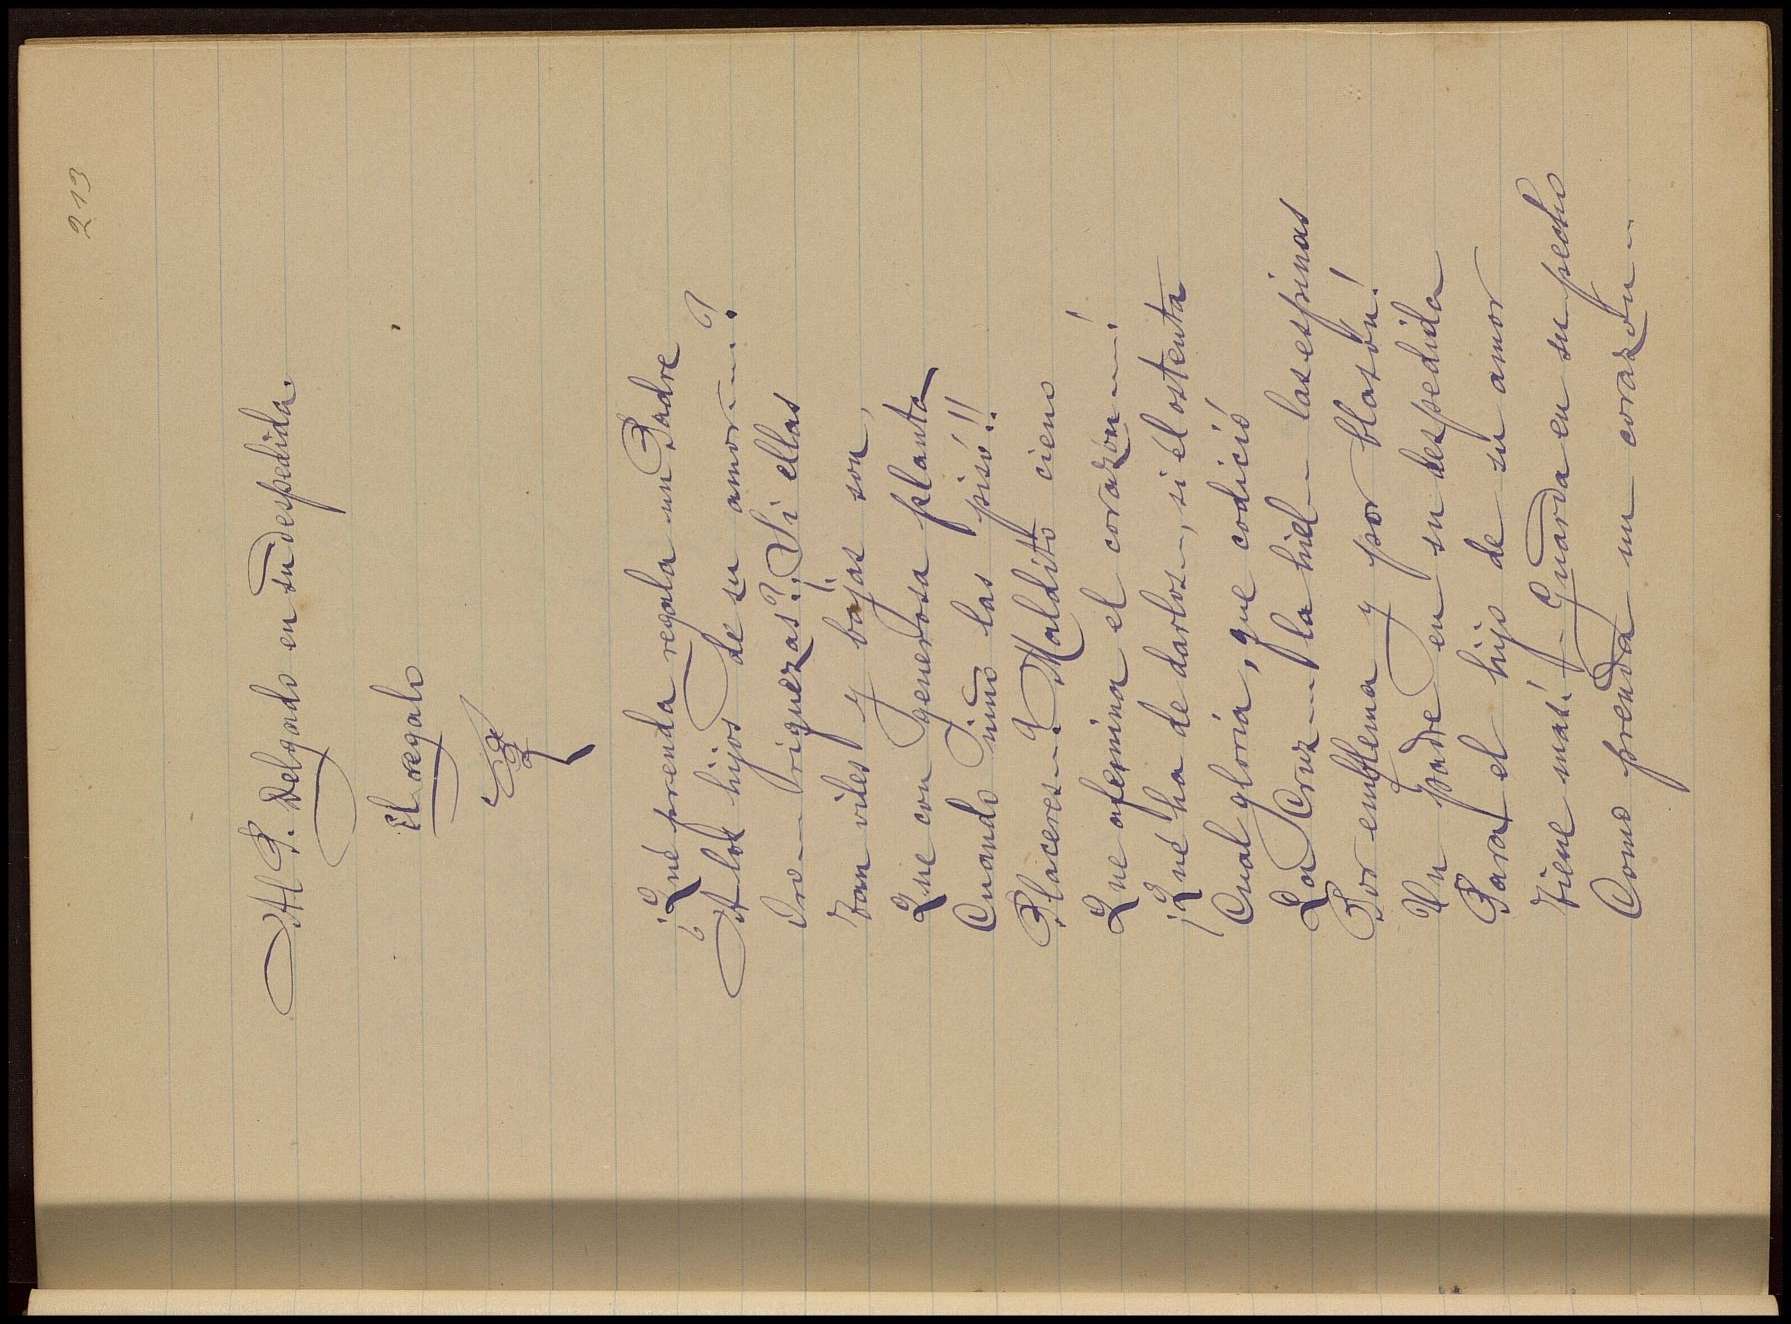 213
Al P. Delgado en su despedida.
El regalo
¿Qué prenda regala un Padre
A los hijos de su amor...?
Oro – riquezas?; Si ellas
Tan viles y bajas son,
Que con generosa planta
Cuando niño las pisó!!
Placeres..? Maldito cieno
Que afemina el corazón...!
¡Qué ha de darlos–, si él ostenta
Cual gloria, que codició
La Cruz... la hiel – las espinas
Por emblema y por blasón!
Un padre en su despedida
Para el hijo de su amor
Tiene más: – Guarda en su pecho
Como prenda un corazón..